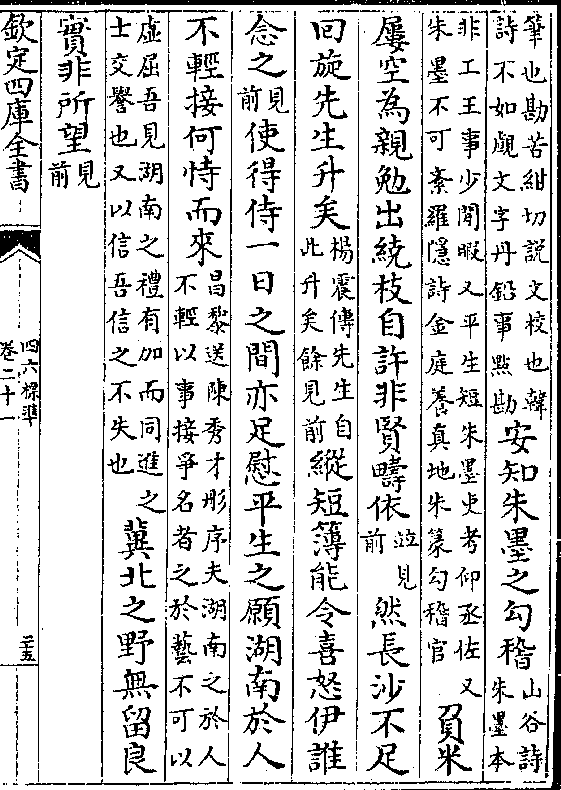 筆也勘苦紺切説文校也韓
詩不如覷文字丹鉛事㸃勘
安知朱墨之勾稽
山谷詩
朱墨本
非工王事少閒暇又平生短朱墨吏考仰丞佐又
朱墨不可紊羅隱詩金庭養真地朱篆勾稽官
負米
屢空為親勉出繞枝自許非賢疇依
並見
前
然長沙不足
回旋先生升矣
楊震傳先生自
此升矣餘見前
縱短簿能令喜怒伊誰
念之
見
前
使得侍一日之間亦足慰平生之願湖南於人
不輕接何恃而來
昌黎送陳秀才彤序夫湖南之於人
不輕以事接爭名者之於藝不可以
虛屈吾見湖南之禮有加而同進之
士交譽也又以信吾信之不失也
冀北之野無留良
實非所望
見
前
欽定四庫全書
四六標準
卷二十一
二十五